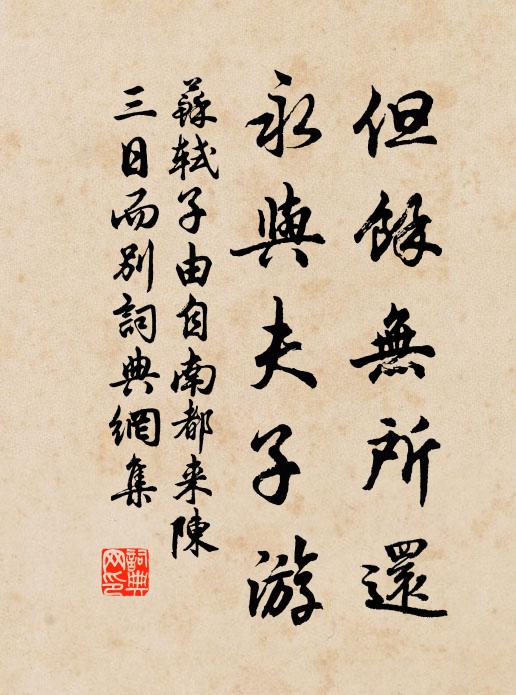 但餘無所還
永與夫子游
蘇軾子由自南都来陳
三日而別詞典網集
詞典网印